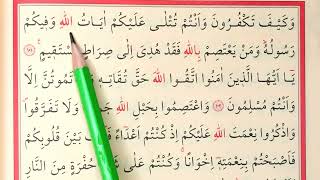 وَكَيْفَ تَكْفُرُونَ وَاَنْتُمْ تُتْلٰى عَلَيْكُمْ اٰيَاتُ اللّٰهِ وَفٖيكُمْ
رَسُولُهُ وَمَنْ يَعْتَصِمْ بِاللّٰهِ فَقَدْ هُدِىَ اِلٰى صِرَاطٍ مُسْتَقٖيمٍ ﴿١٠١﴾
يَٓا اَيُّهَا الَّذٖينَ اٰمَنُوا اتَّقُوا اللّٰهَ حَقَّ تُقَاتِهٖ وَلَا تَمُوتُنَّ اِلَّا
وَاَنْتُمْ مُسْلِمُونَ ﴿١٠٢﴾ وَاعْتَصِمُوا بِحَبْلِ اللّٰهِ جَمٖيعًا وَلَا تَفَرَّقُوا
وَاذْكُرُوا نِعْمَتَ اللّٰهِ عَلَيْكُمْ اِذْ كُنْتُمْ اَعْدَٓاءً فَاَلَّفَ بَيْنَ قُلُوبِكُمْ
فَاَصْبَحْتُمْ بِنِعْمَتِهٖٓ اِخْوَانًا وَكُنْتُمْ عَلٰى شَفَا حُفْرَةٍ مِنَ النَّارِ